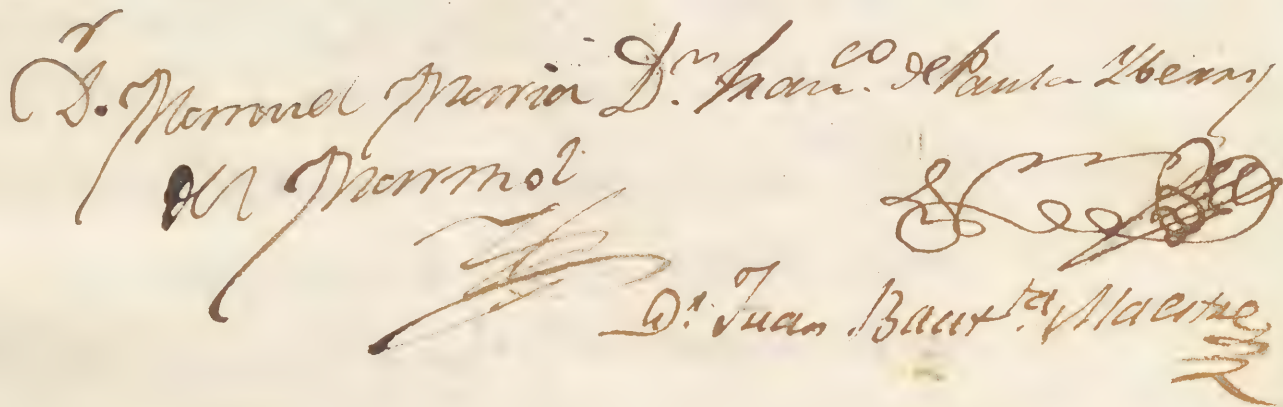 Dr. Manuel Maria
del Marmol
Dn. Franco. de Paula
Dr. Juan Bautta. Maestre